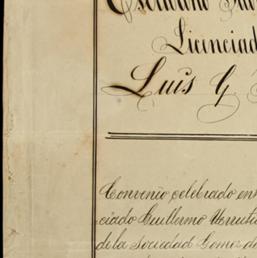 Escribano
Licenciad
Luis G
Convenio celebrado en
ciado Guillermo
de la Sociedad Gomez de